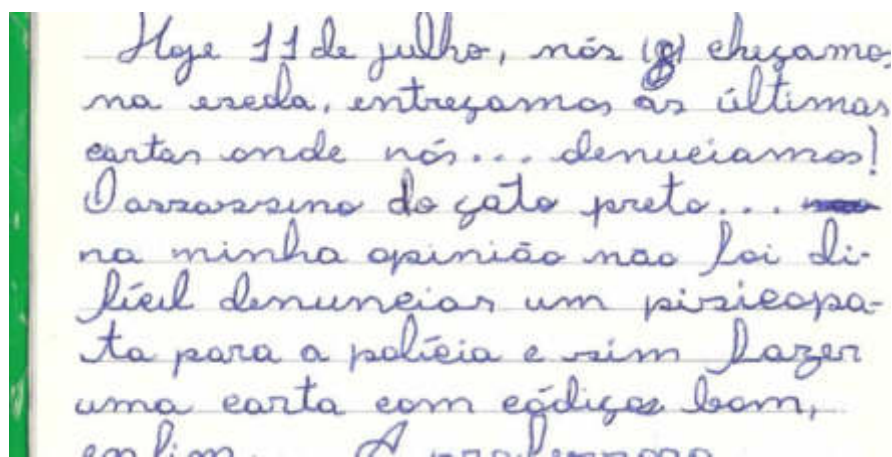 Hoje 11 de julho, nós (g) chegamos
na escola, entregamos as últimas
cartas onde nós... denuciamos!
O assassino do gato preto...
na minha opinião não foi di-
fícil denunciar um pisicopa-
ta para a polícia e sim fazer
uma carta com códigos bom,
enfim... A professora